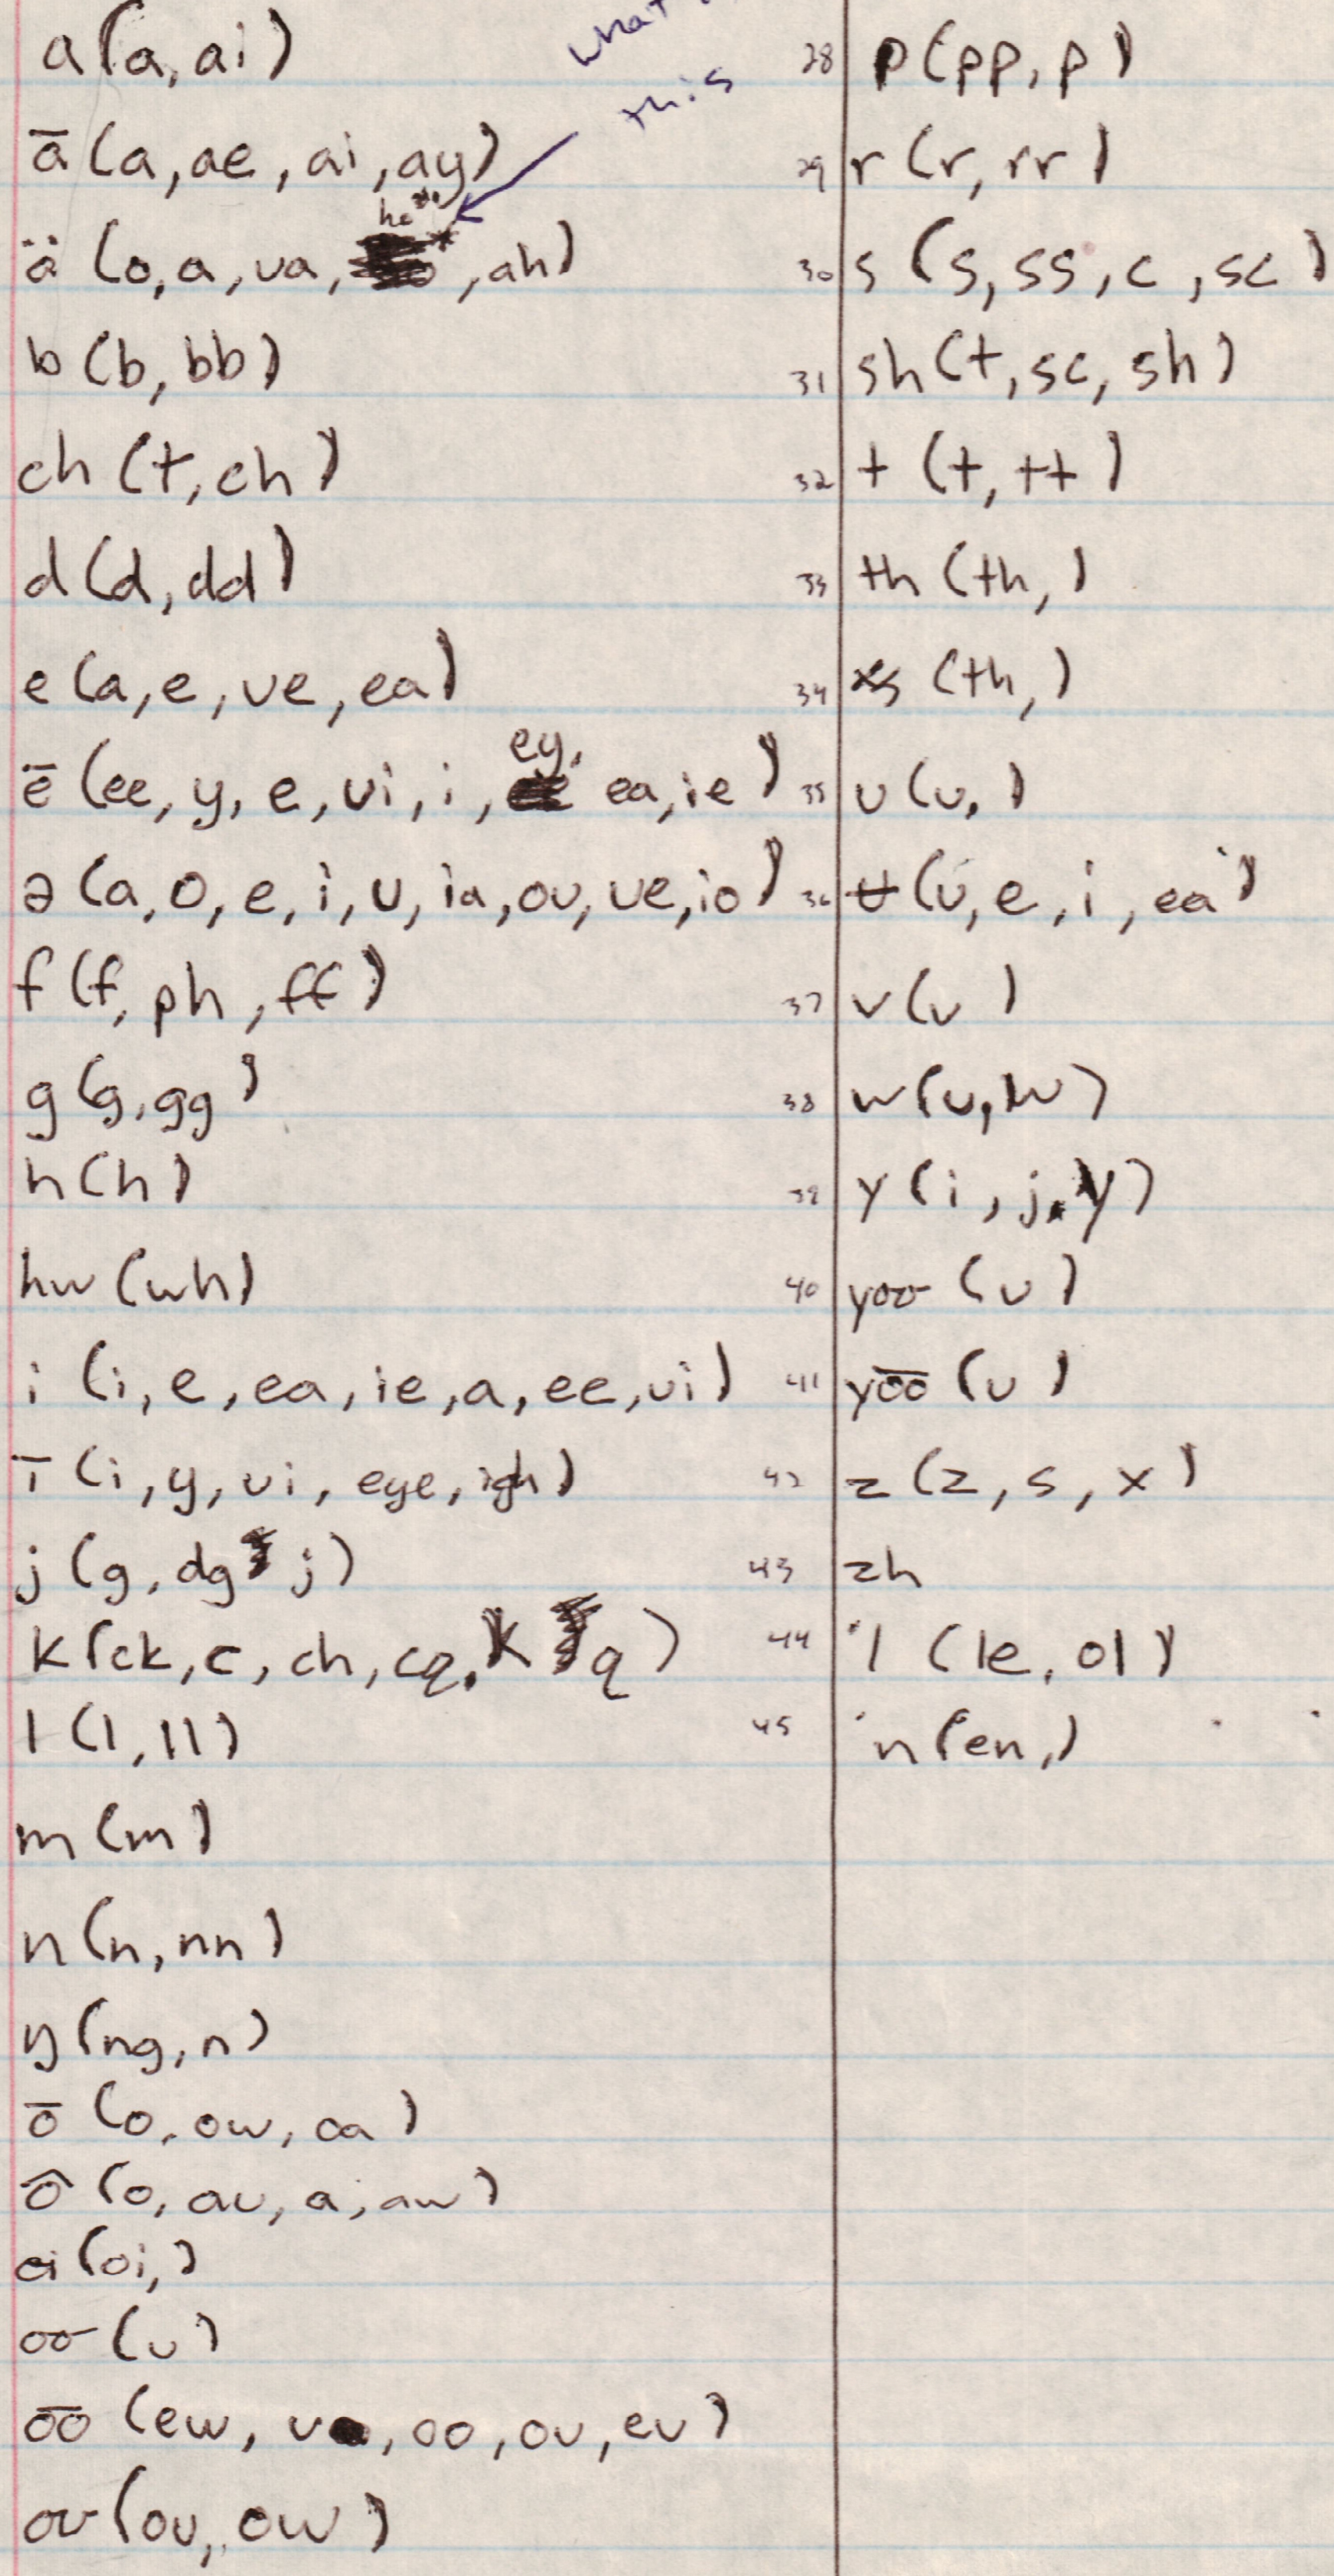 a (a, ai)
ā (a, ae, ai, ay)
ä (o, a, ua, ho, ah)
b (b, bb)
ch (t, ch)
d (d, dd)
e (a, e, ue, ea)
ē (ee, y, e, ui, i, ey, ea, ie)
ə (a, o, e, i, u, ia, ou, ue, io)
f (f, ph, ff)
g (g, gg)
h (h)
hw (wh)
i (i, e, ea, ie, a, ee, ui)
ī (i, y, ui, eye, igh)
j (g, dg, j)
k (ck, c, ch, cq, k, q)
l (l, ll)
m (m)
n (n, nn)
ŋ (ng, n)
ō (o, ow, oa)
ô (o, au, a, aw)
oi (oi, )
oo (u)
o͞o (ew, u, oo, ou, eu)
ou (ou, ow)
what
this
28 p (pp, p)
29 r (r, rr)
30 s (s, ss, c, sc)
31 sh (t, sc, sh)
32 t (t, tt)
33 th (th, )
34 (th, )
35 u (u, )
36 ʉ (u, e, i, ea)
37 v (v )
38 w (u, w)
39 y (i, j, y)
40 yoo (u)
41 yo͞o (u)
42 z (z, s, x)
43 zh
44 'l (le, ol)
45 'n (en, )